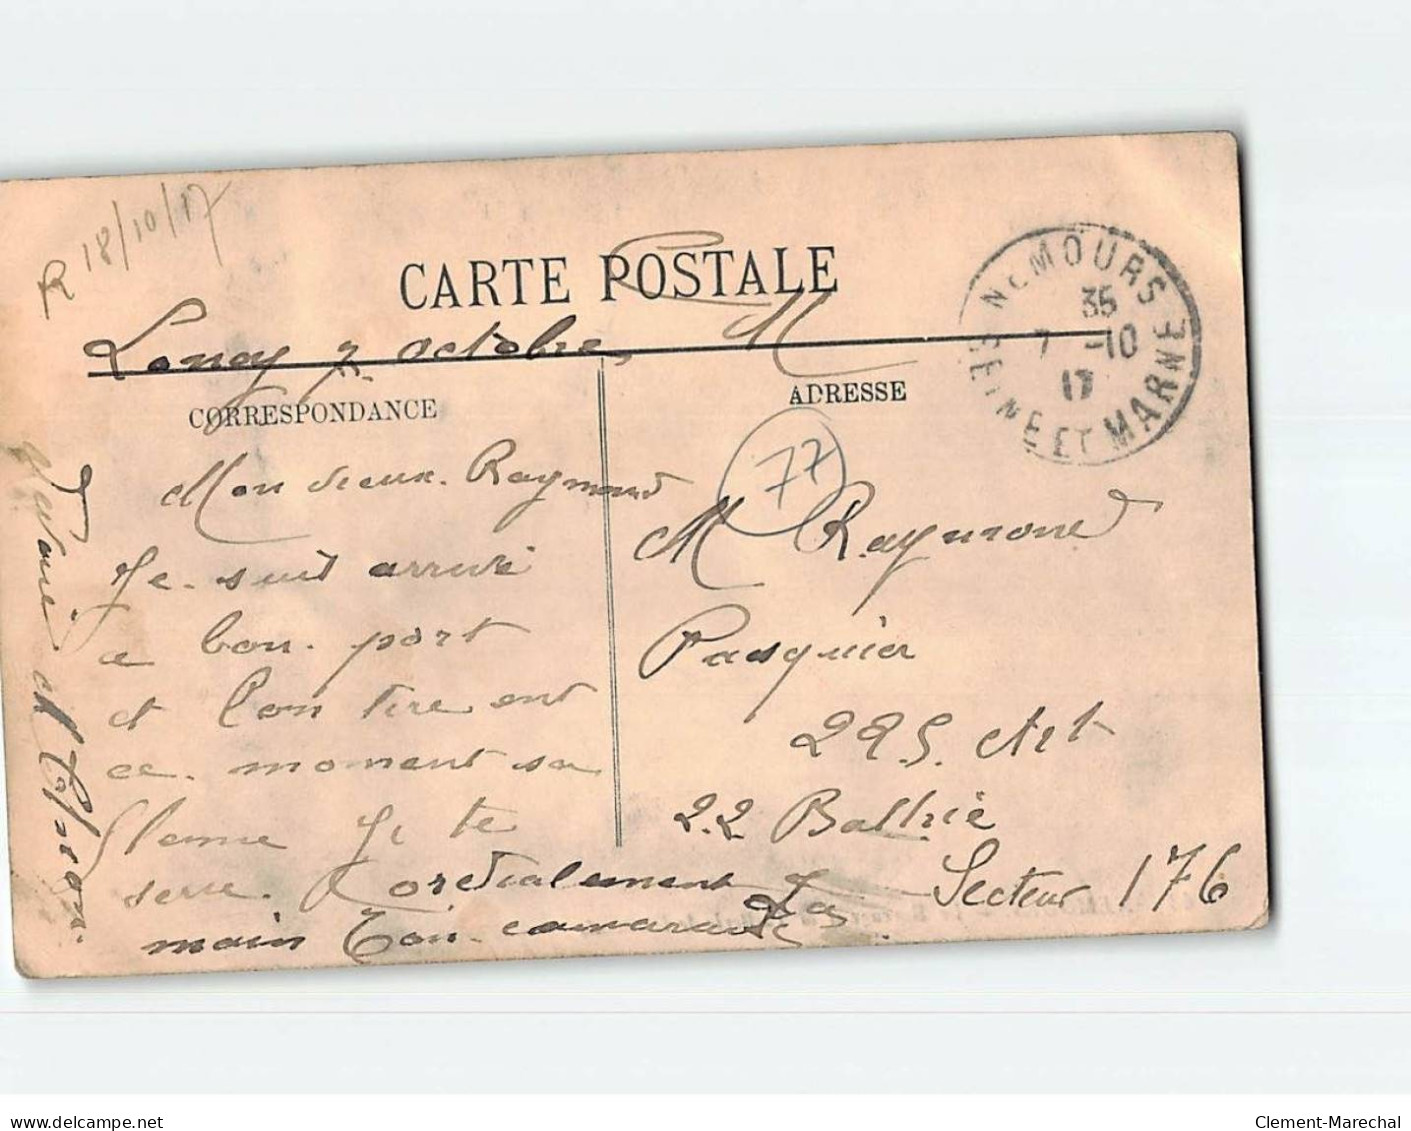 R 18/10/17
CARTE POSTALE
Loncy 7. octobre
FM
NEMOURS
35
7 -10
17
SEINE ET MARNE
CORRESPONDANCE
ADRESSE
77
Mon vieux. Raymond
Je. suis arrivé
a bon. port
et l'on tire ent
ce. moment sa
flemme Je te
serre. Cordialement La
main Ton. camarade
M Raymond
Pasquier
225. Art
22 Battrie
Secteur 176
www.delcampe.net
Clement-Marechal